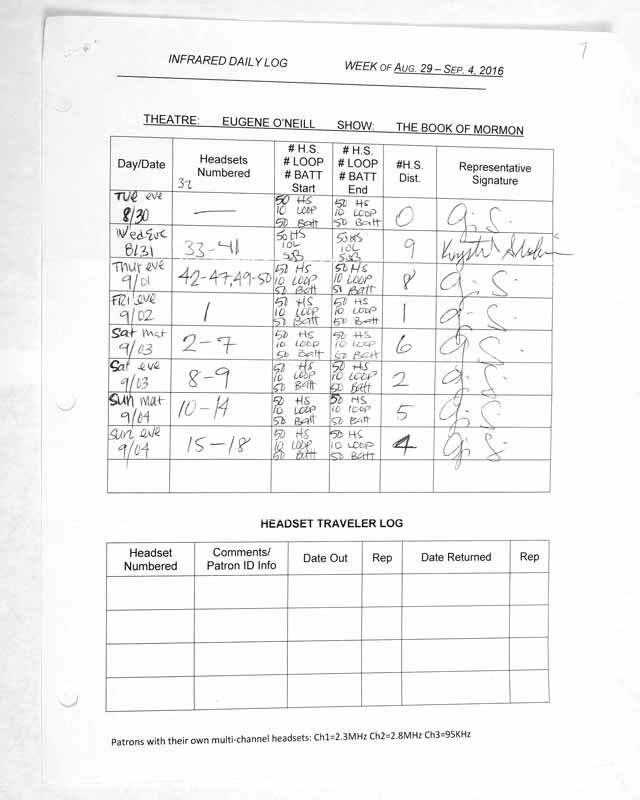 7
INFRARED DAILY LOG WEEK OF AUG. 29 – SEP. 4, 2016
THEATRE: EUGENE O'NEILL SHOW: THE BOOK OF MORMON
Day/Date
Headsets
Numbered
32
# H.S.
# LOOP
# BATT
Start
# H.S.
# LOOP
# BATT
End
#H.S.
Dist.
Representative
Signature
Tue eve
8/30
—
50 HS
10 LOOP
50 Batt
50 HS
10 LOOP
50 Batt
0
G. S.
Wed Eve
8/31
33-41
50 HS
10L
50B
50HS
10L
50B
9
Thur eve
9/01
42-47, 49-50
50 HS
10 LOOP
50 Batt
50 HS
10 LOOP
50 Batt
8
G. S.
FRI. eve
9/02
1
50 HS
10 LOOP
50 Batt
50 HS
10 LOOP
50 Batt
1
G. S.
Sat mat
9/03
2-7
50 HS
10 LOOP
50 Batt
50 HS
10 LOOP
50 Batt
6
G. S.
Sat eve
9/03
8-9
50 HS
10 LOOP
50 Batt
50 HS
10 LOOP
50 Batt
2
G. S.
Sun mat
9/04
10-14
50 HS
10 LOOP
50 Batt
50 HS
10 LOOP
50 Batt
5
G. S.
Sun eve
9/04
15-18
50 HS
10 LOOP
50 Batt
50 HS
10 LOOP
50 Batt
4
G. S.
HEADSET TRAVELER LOG
Headset
Numbered
Comments/
Patron ID Info
Date Out
Rep
Date Returned
Rep
Patrons with their own multi-channel headsets: Ch1=2.3MHz Ch2=2.8MHz Ch3=95KHz